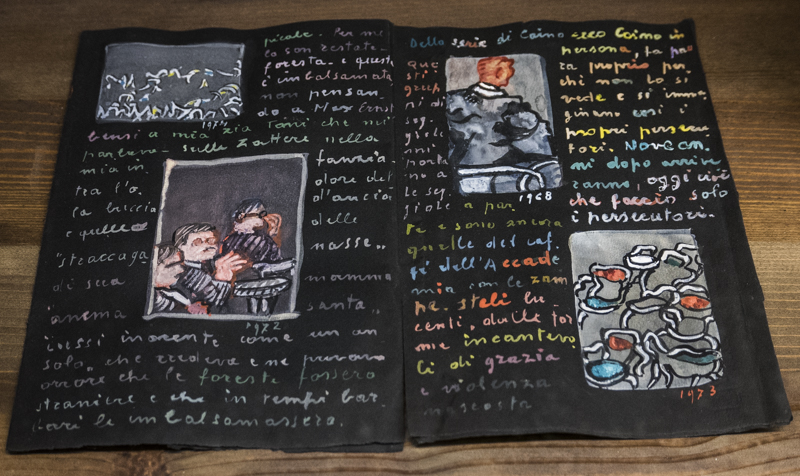 picale. Per me
lo son restate
foresta e queste
è imbalsamata
non pensan
do a Max Ernst
1971
bensì a mia zia Toni che mi
parlava sulle zattere nella
mia in fanzia
tra l'o dore del
la buccia d'arancia
e quelle delle
"straccaga nasse"
di sua mamma
anema santa"
1972
Lessi inorente come un an
solo, che credeva e ne provavo
orrore che le foreste fossero
straniere e che in tempi bar
bari le imbalsamassero.
Della serie di Caino
Que
sti
grup
pi di
seg
giole
mi
porta
no a
le seg
giole a par
1968
te e sono ancora
quelle del caf
fè dell'Accade
mia con le zam
pe. steli lu
centi, dalle for
me incantevo
li di grazia
e violenza
nascosta
ecco Caino in
persona, fa pau
ra proprio per
chi non lo si
vede e si imma
ginano così i
propri persecu
tori. Nove an
ni dopo arrive
ranno, oggi cioè
che faccio solo
i persecutori.
1973